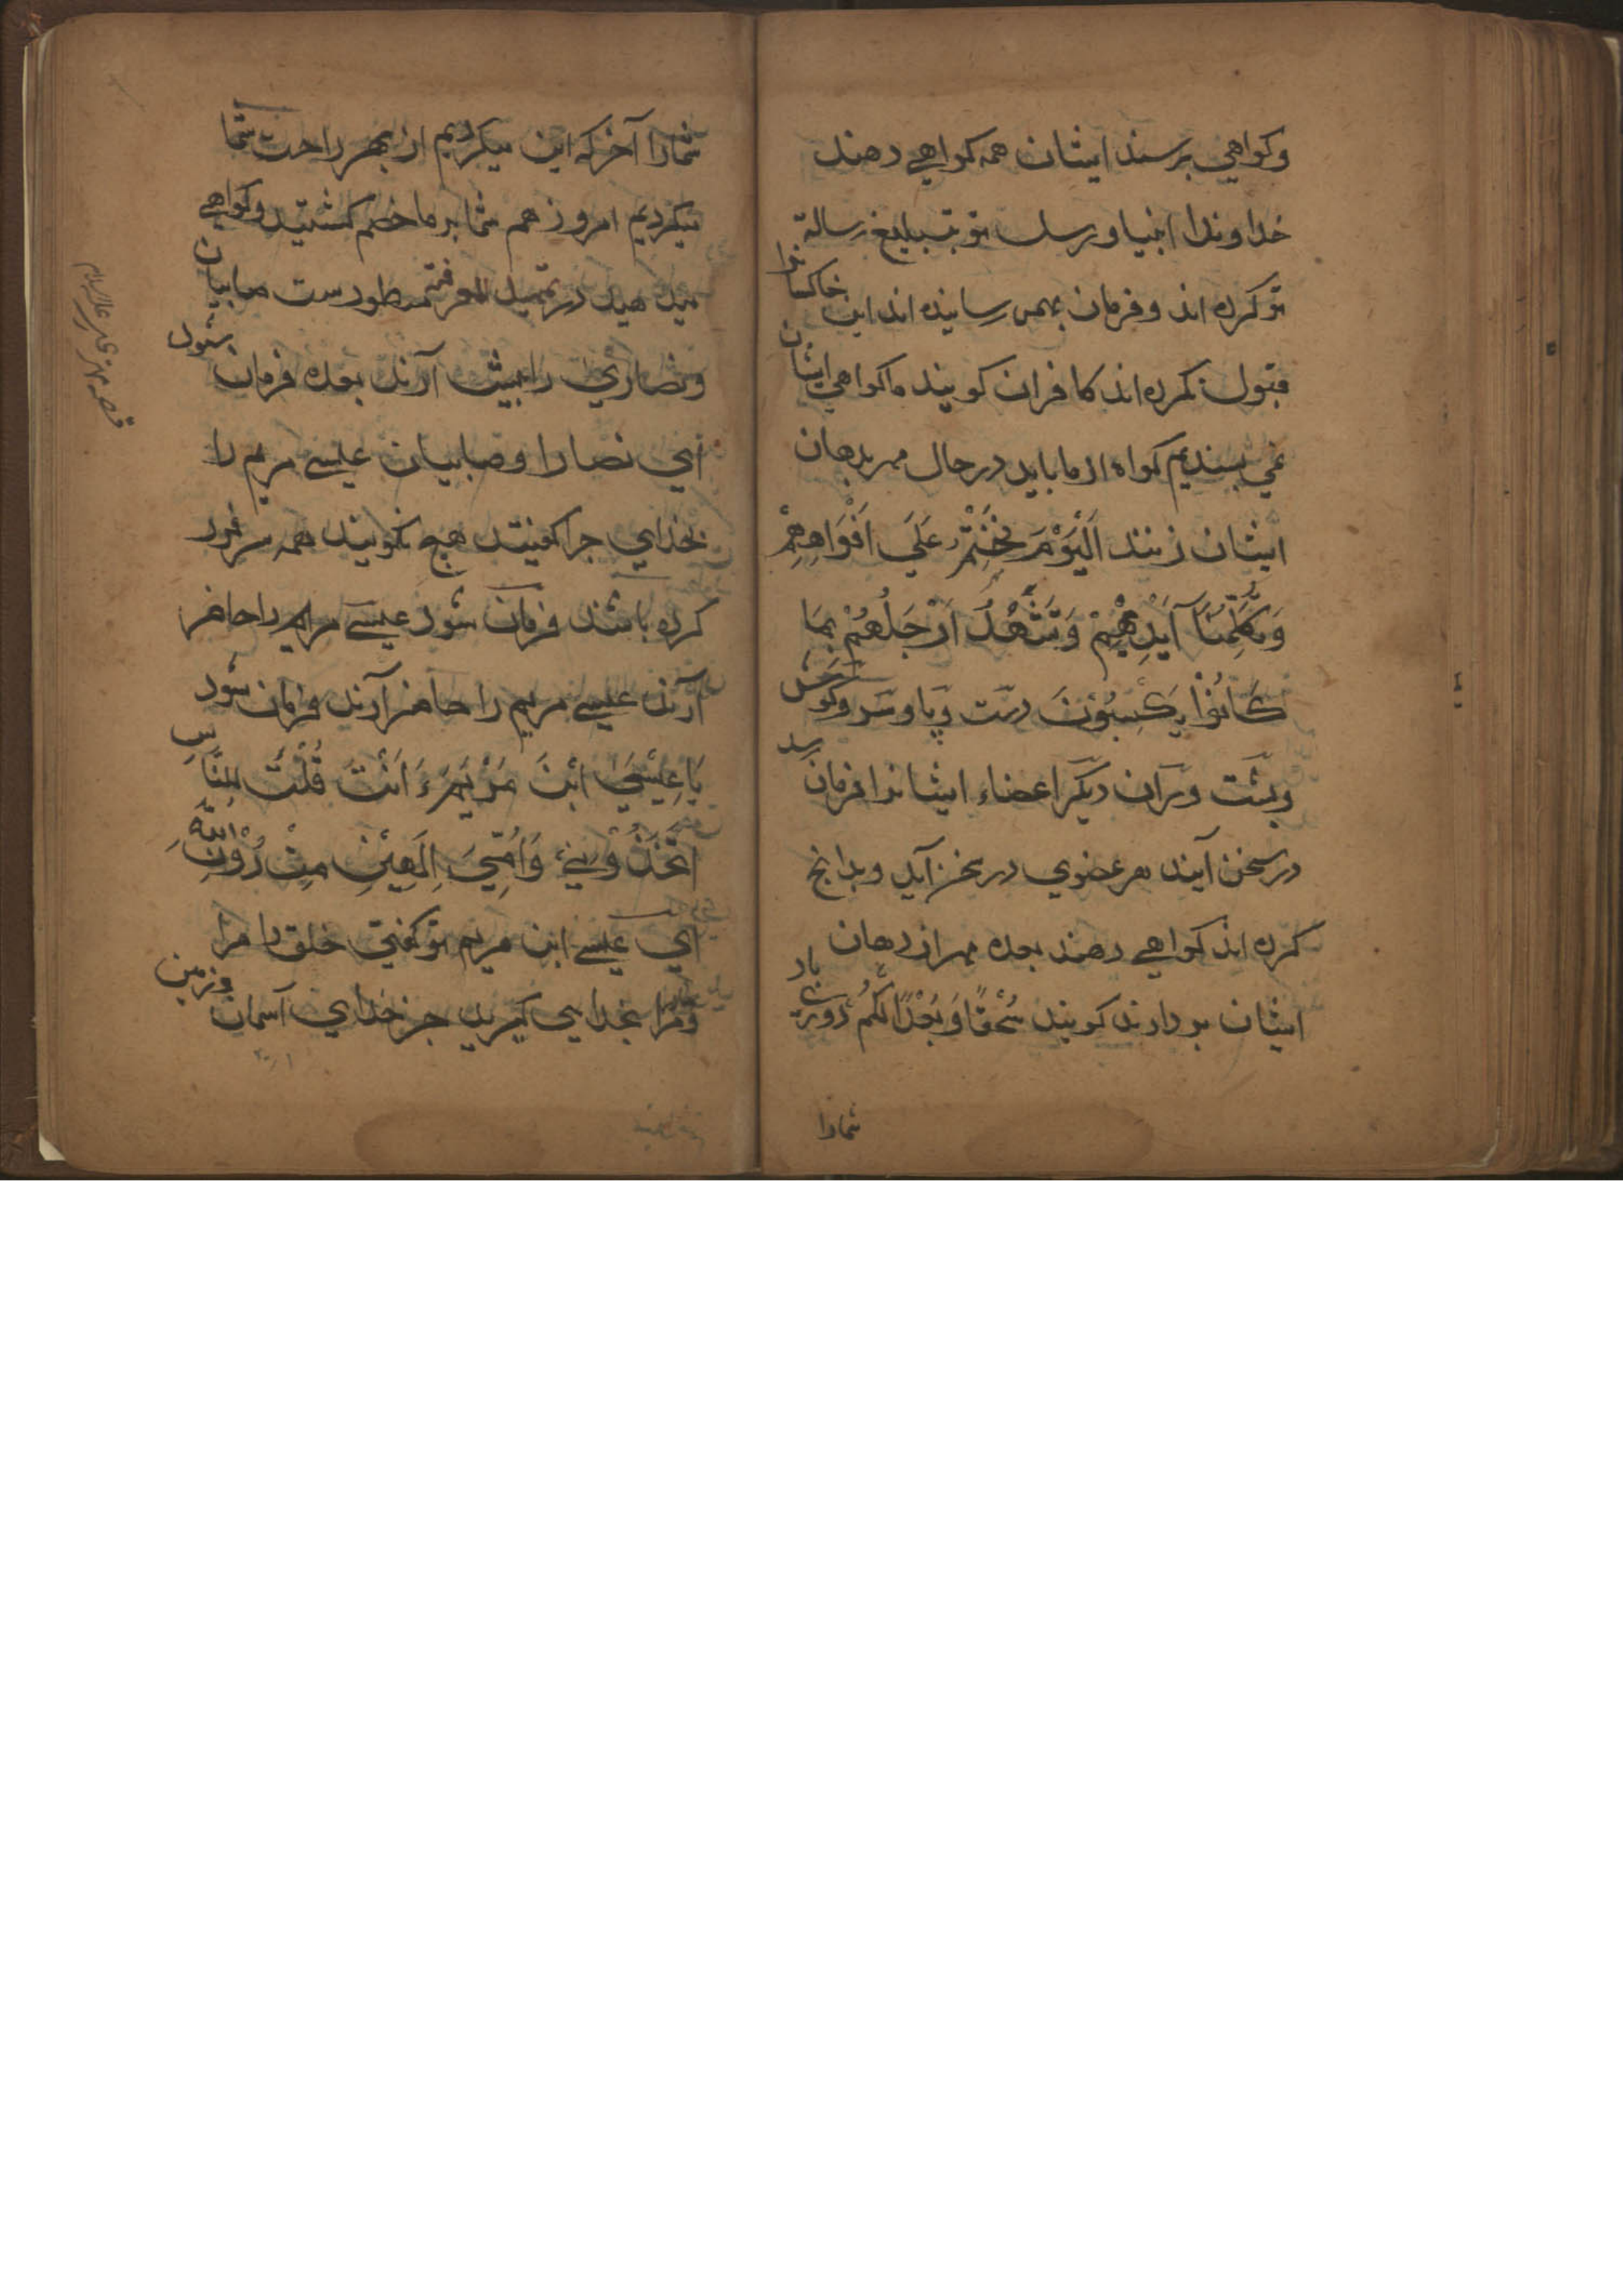 وکواهي برسند ایشان همه کواهي دهند
خداوندا انبیا و رسل تو بتبلیغ رسالة
تو کرده اند و فرمان بهمه رسانیده اند این خاکسارانرا
قبول نکرده اند کافران کویند ما کواهي ایشان
نمي پسندیم کواه از ما باید در حال مهر بدهان
ایشان زنند اَلْیَوْمَ نَخْتِمُ عَلَي اَفْوَاهِهِمْ
وَتُکَلِّمُنَا اَیْدِیْهِمْ وَتَشْهَدُ اَرْجُلُهُمْ بِمَا
کَانُوْا یَکْسِبُوْنَ دست و پا و سر و کوش
و پشت و ران دیکر اعضاء ایشانرا فرمان رسد
در سخن آیند هر عضوي در سخن آید و بدانچ
کرده اند کواهي دهند بعده مهر از دهان
ایشان بردارند کویند سُحْقًا وَبُعْدًا لَکُمْ دوري باد
شمارا
شمارا آخر که این میکردیم از بهر راحت شما
میکردیم امروز هم شما بر ما خصم کشتید و کواهي
میدهید در تمهید المعرفة مسطورست صابیان
و نصاري را پیش آرند بعده فرمان شود
اي نصارا و صابیان عیسي مریم را
بخداي چرا کفتید هیچ نکویند همه سر فرود
کرده باشند فرمان شود عیسي مریم را حاضر
آرند عیسي مریم را حاضر آرند فرمان شود
یَا عِیْسَي ابْنَ مَرْیَمَ ءَ اَنْتَ قُلْتَ لِلنَّاسِ
اتَّخِذُوْنِيْ وَاُمِّيَ اِلٰهَیْنِ مِنْ دُوْنِ اللّٰهِ
اي عیسي ابن مریم تو کفتي خلق را مرا
و مرا بخدایي کیرید جز خداي آسمان و زمین